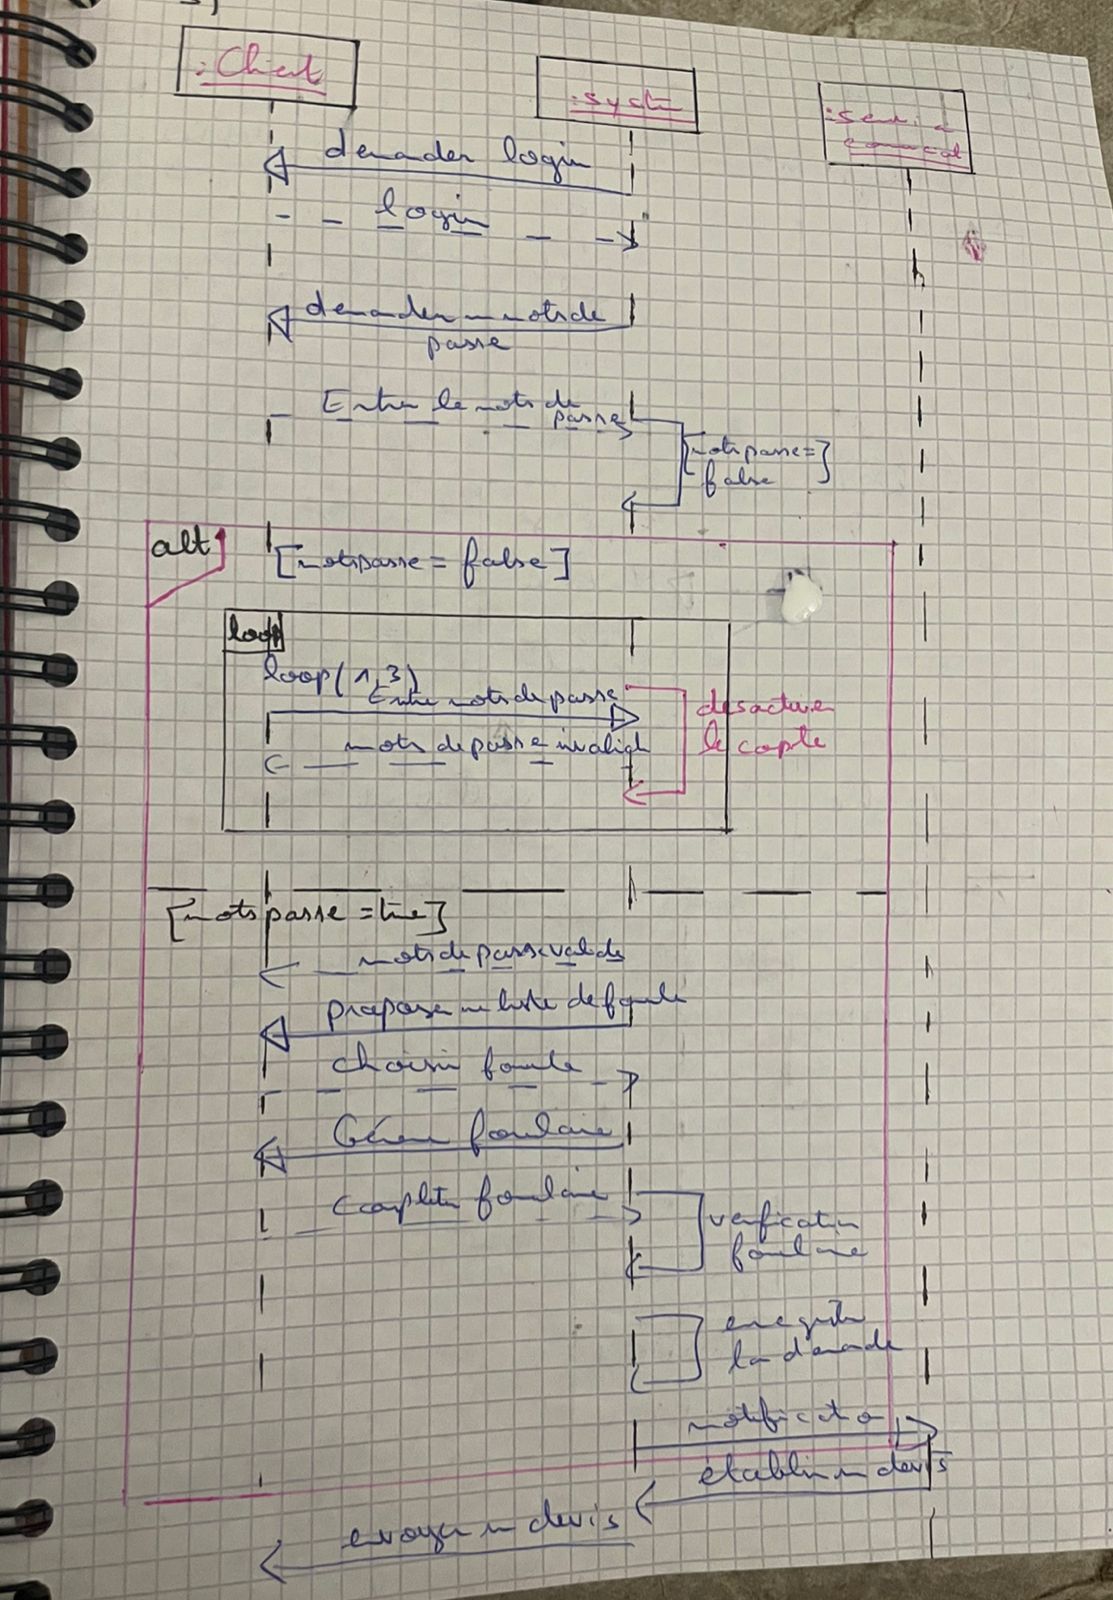 :Client
:syst
demander login
login
demander un mots de
passe
Entrer le mots de
passe
[motspasse=]
false
alt
[motspasse = false]
loop
loop(1,3)
Entrer mots de passe
mots de passe invalid
desactiver
le compte
[motspasse = true]
mots de passe valide
propose un liste de
choisir
formulaire
completer formulaire
verification
formulaire
la demande
notification
etablir un devis
envoyer un devis